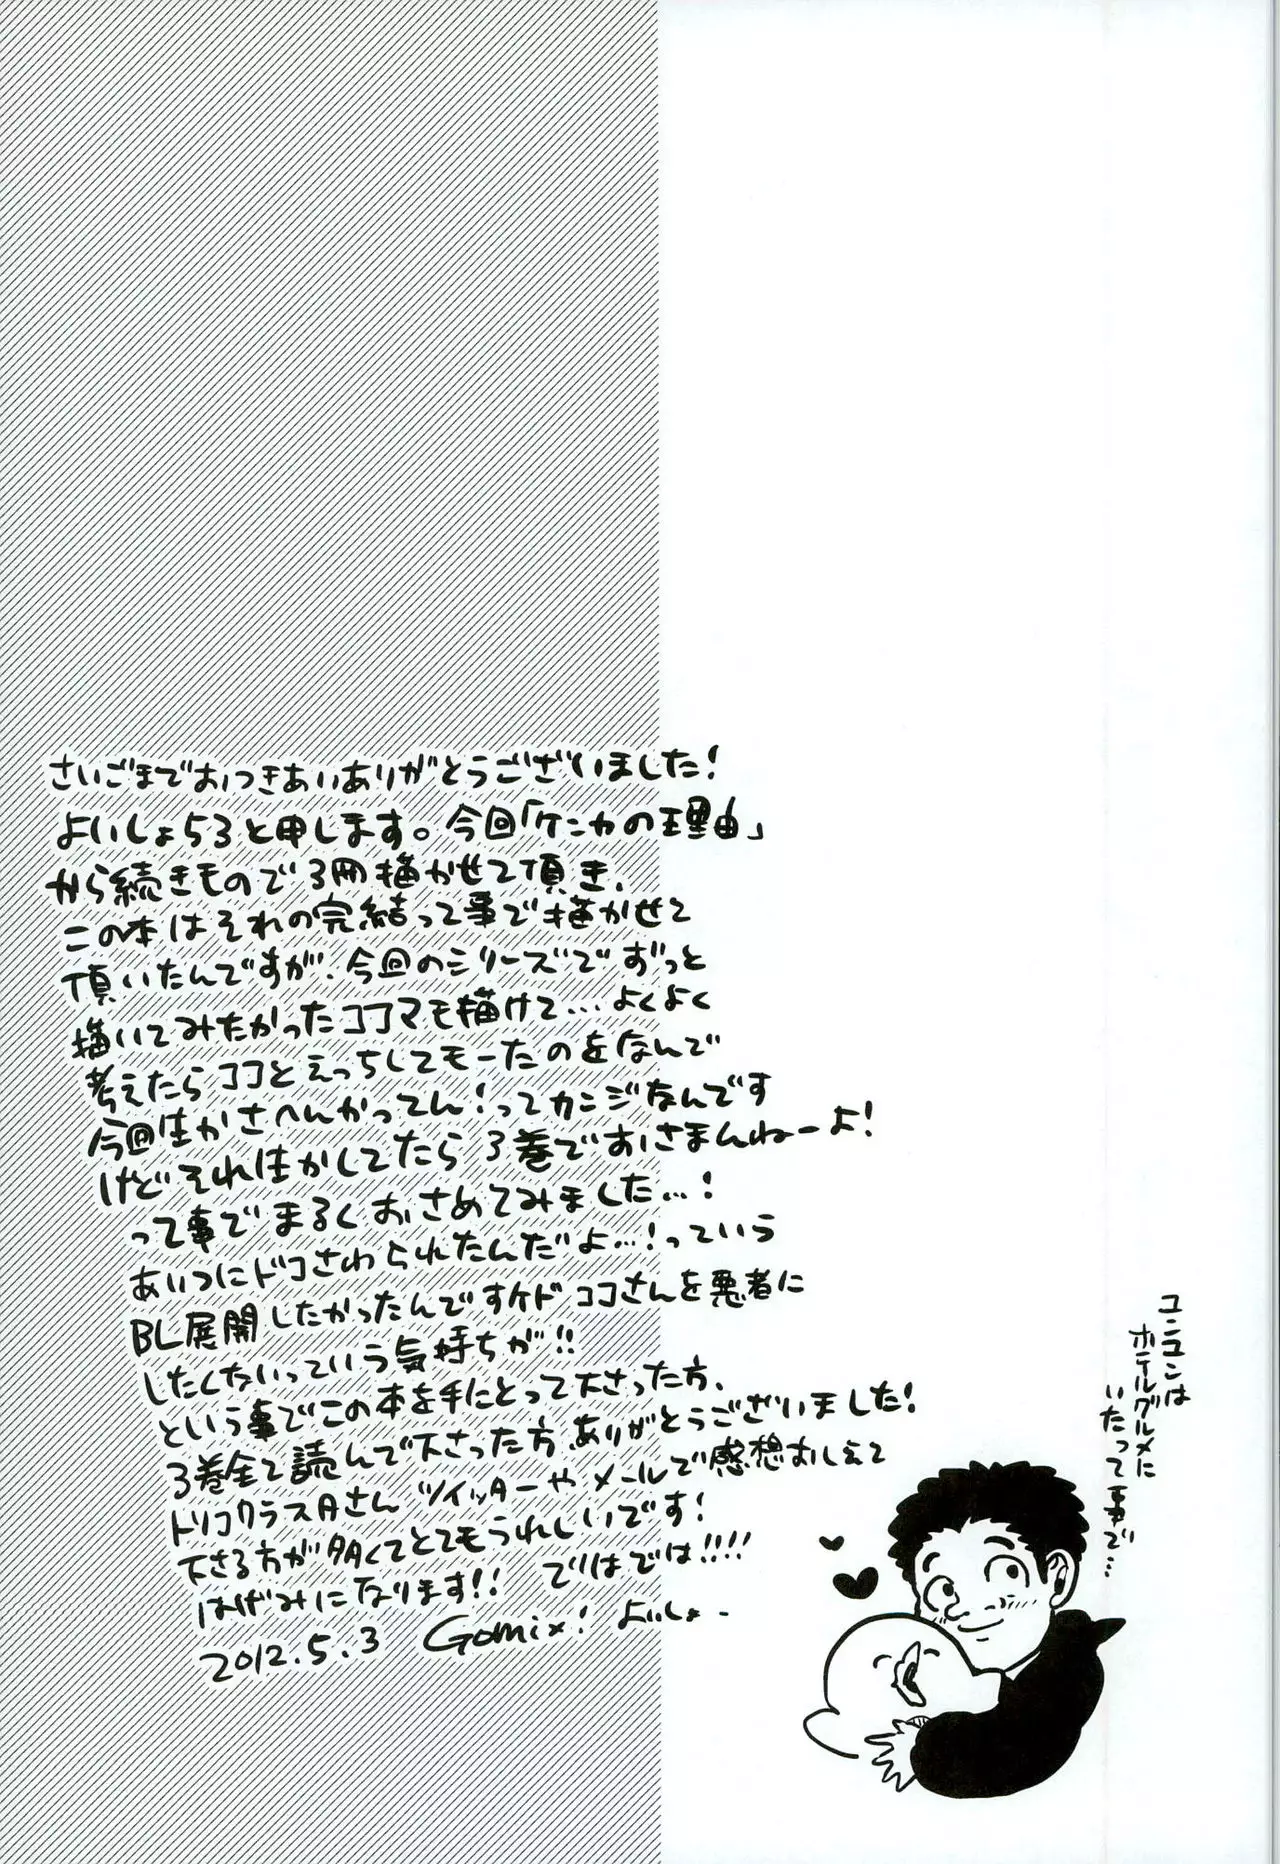 さいごまでおつきあいありがとうございました!
よいしょ53と申します。今回「ケンカの理由」
から続きもので3冊描かせて頂き、
この本はそれの完結って事で描かせて
頂いたんですが、今回のシリーズでずっと
描いてみたかったココマも描けて…よくよく
考えたらココとえっちしてモーたのをなんで
今回生かさへんかってん!ってカンジなんです
けどそれ生かしてたら3巻でおさまんねーよ!
って事でまるくおさめてみました…!
あいつにドコさわられたんだよ…!っていう
BL展開したかったんですケドココさんを悪者に
したくないっていう気持ちが!!
という事でこの本を手にとって下さった方、
3巻全て読んで下さった方、ありがとうございました!
トリコクラスタさん ツイッターやメールで感想おしえて
下さる方が多くてとてもうれしいです!
はげみになります!! でりはでは!!!!
2012.5.3 Gomix! よいしょ.
ユンユンは
ホテルグルメに
いたって事で…